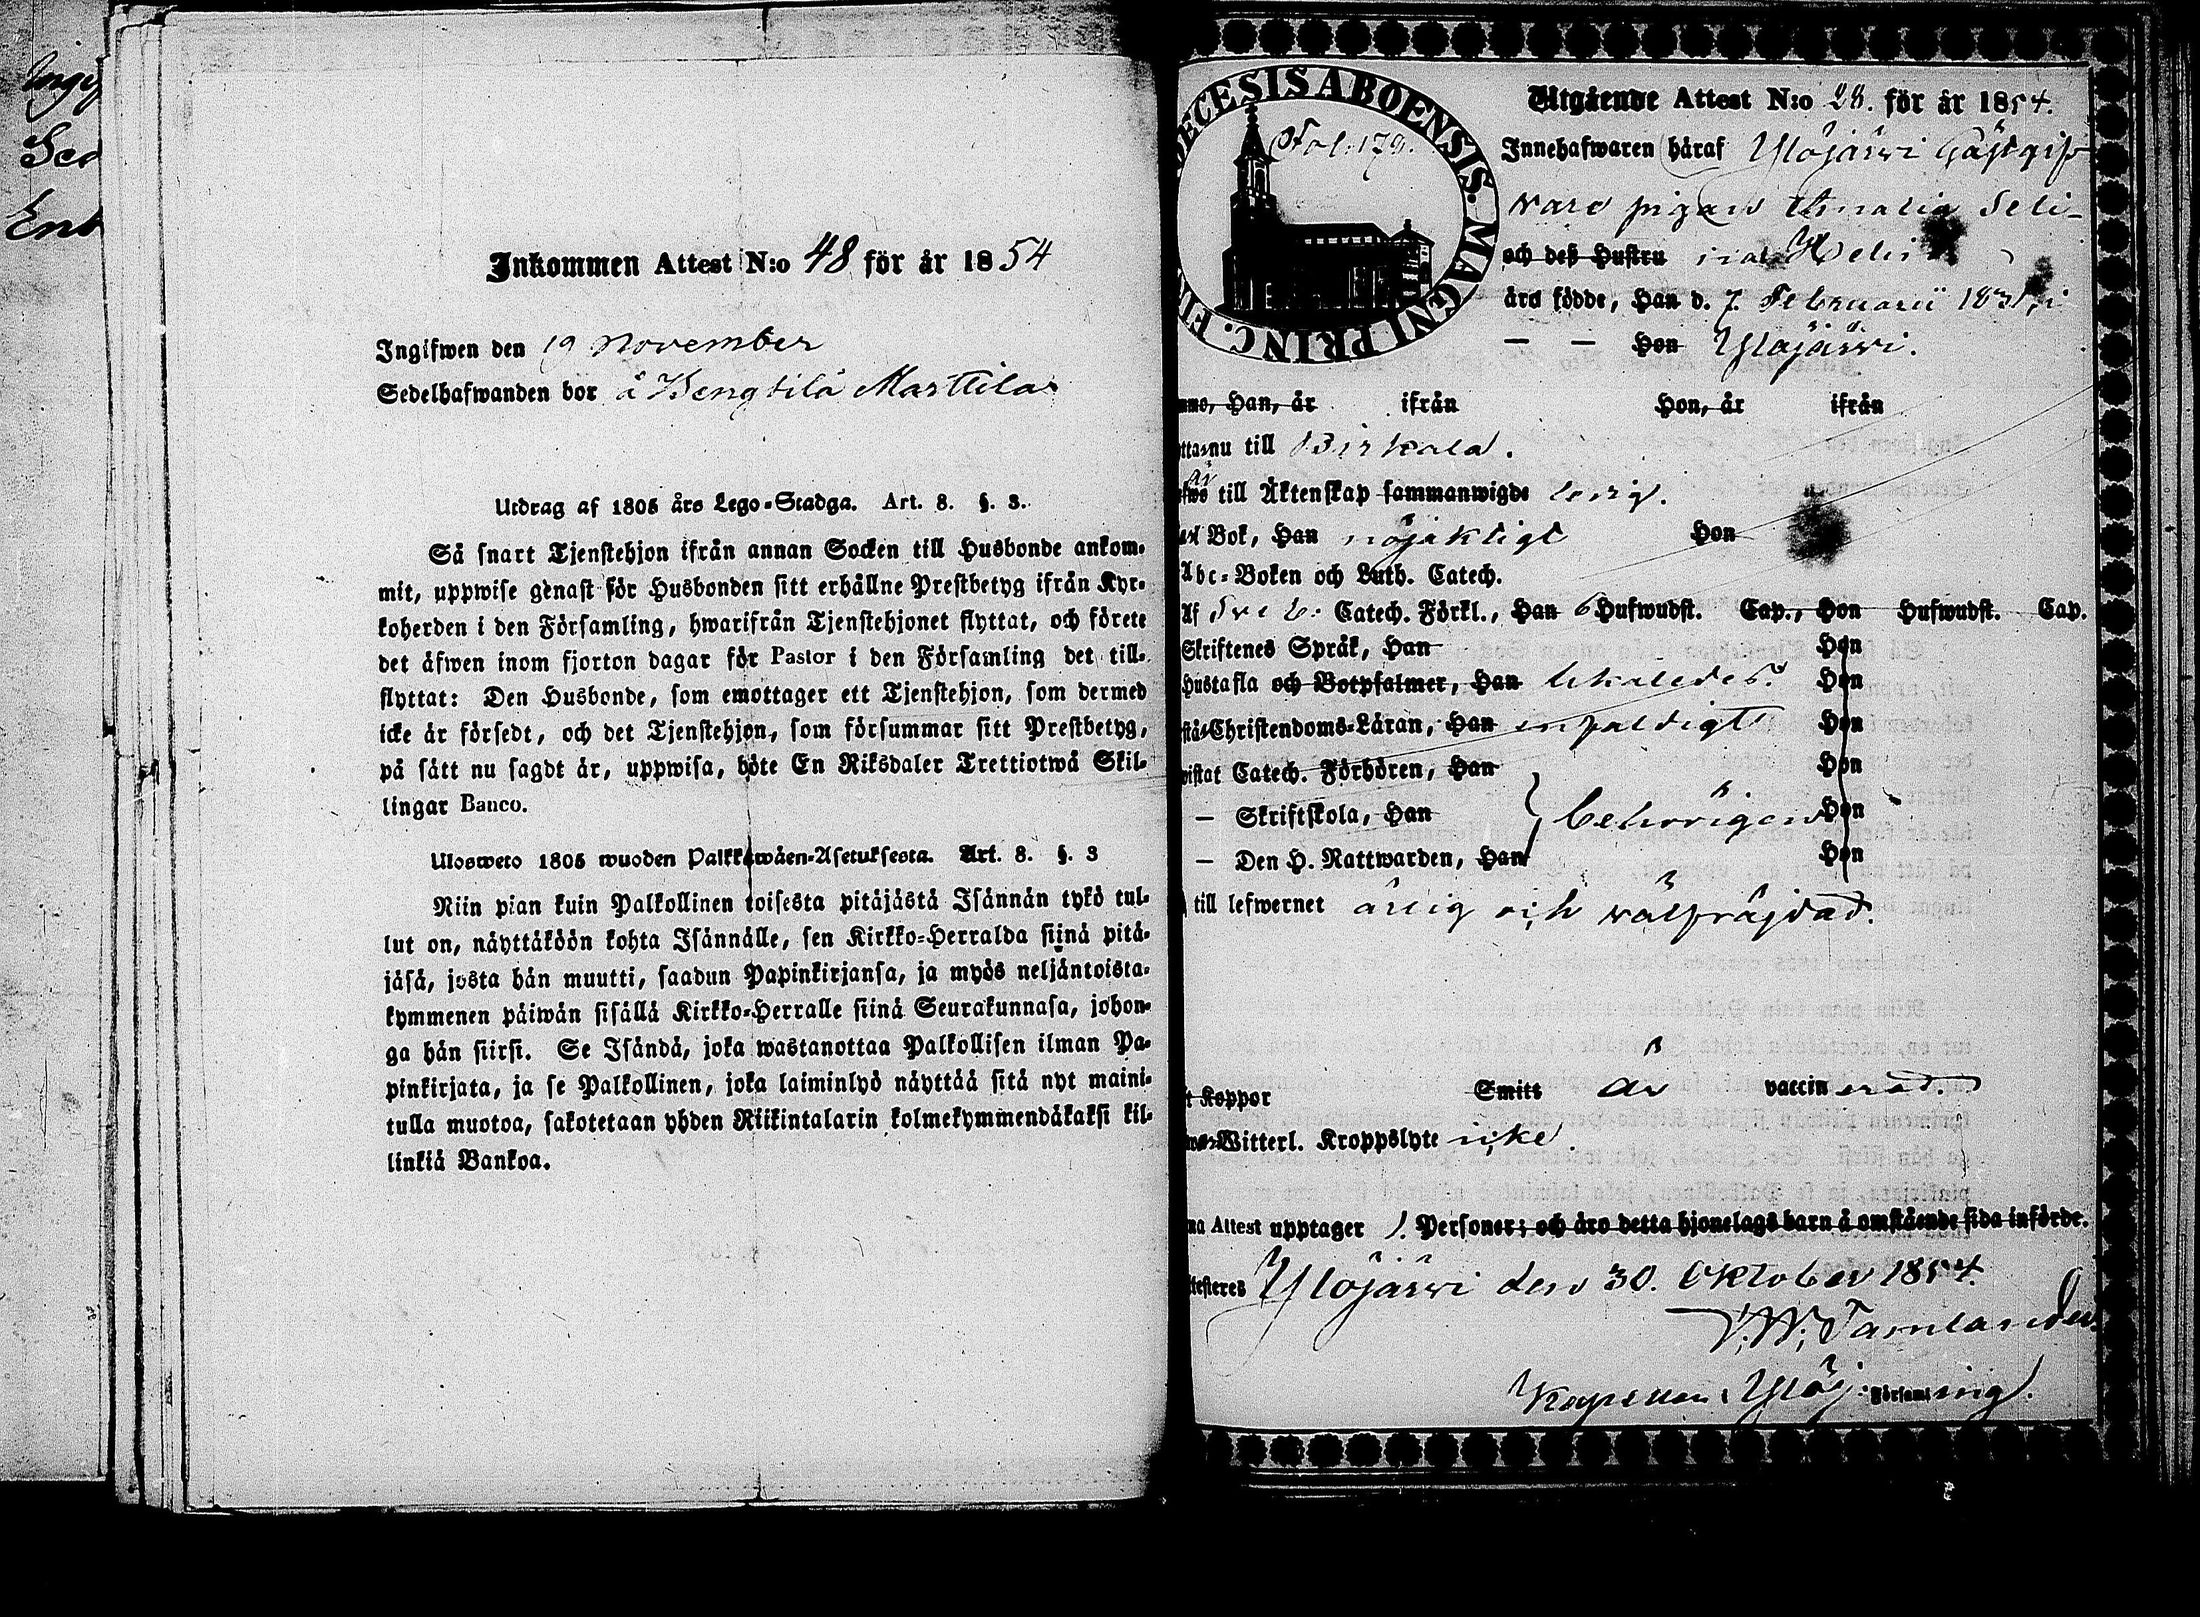 Ingif
Sed
Enk
Inkommen Attest N:o 48 för år 1854
Ingifwen den 19 November
Sedelhafwanden bor å Bengtilä Marttila
Utdrag af 1805 års Lego-Stadga. Art. 8. §. 3.
Så snart Tjenstehjon ifrån annan Socken till Husbonde ankom-
mit, uppwise genast för Husbonden sitt erhållne Prestbetyg ifrån Kyr-
koherden i den Församling, hwarifrån Tjenstehjonet flyttat, och förete
det äfwen inom fjorton dagar för Pastor i den Församling det till-
flyttat: Den Husbonde, som emottager ett Tjenstehjon, som dermed
icke är försedt, och det Tjenstehjon, som försummar sitt Prestbetyg,
på sätt nu sagdt är, uppwisa, böte En Riksdaler Trettiotwå Skil-
lingar Banco.
Ulosweto 1805 wuoden Palkkawäen-Asetuksesta. Art. 8. §. 3
Niin pian kuin Palkollinen toisesta pitäjästä Isännän tykö tul-
lut on, näyttäköön kohta Isännälle, sen Kirkko-Herralda siinä pitä-
jäsä, josta hän muutti, saadun Papinkirjansa, ja myös neljäntoista-
kymmenen päiwän sisällä Kirkko-Herralle siinä Seurakunnasa, johon-
ga hän siirsi. Se Isändä, joka wastanottaa Palkollisen ilman Pa-
pinkirjata, ja se Palkollinen, joka laiminlyö näyttää sitä nyt maini-
tulla muotoa, sakotetaan yhden Riikintalarin kolmekymmendäkaksi kil-
linkiä Bankoa.
DECESIS ABOENSIS. MAGNI PRINC. FI
Fol. 179.
Utgående Attest N:o 28. för år 1854.
Innehafwaren häraf Ylöjärwi Gästgif
vare pigan Amalia Seli-
och deß Hustru ina Helin
äro födde, Han d. 7 Februarii 1831, i
— — Hon Ylöjärwi.
Han, år ifrån Hon, år ifrån
nu till Birkala.
är
till Äktenskap sammanwigde ledig.
Bok, Han nöjaktigt Hon
Abc-Boken och Luth. Catech.
Af Sveb. Catech. Förkl., Han 6 Hufwudst. Cap., Hon Hufwudst. Cap.
Skriftenes Språk, Han Hon
Hustafla och Botpsalmer, Han Hon
Christendoms-Läran, Han enfaldigt Hon
Catech. Förhören, Han Hon
— Skriftskola, Han behörigen Hon
— Den H. Nattwarden, Han Hon
till lefwernet ärlig och välfräjdad.
Koppor Smitt är vaccinerad.
Witterl. Kroppslyte icke.
Attest upptager 1. Personer; och äro detta hjonelags barn å omstående sida införde.
Ylöjärvi den 30. Oktober 1854.
V. W. Tamlander
Kapellan i Ylöj. Församling.